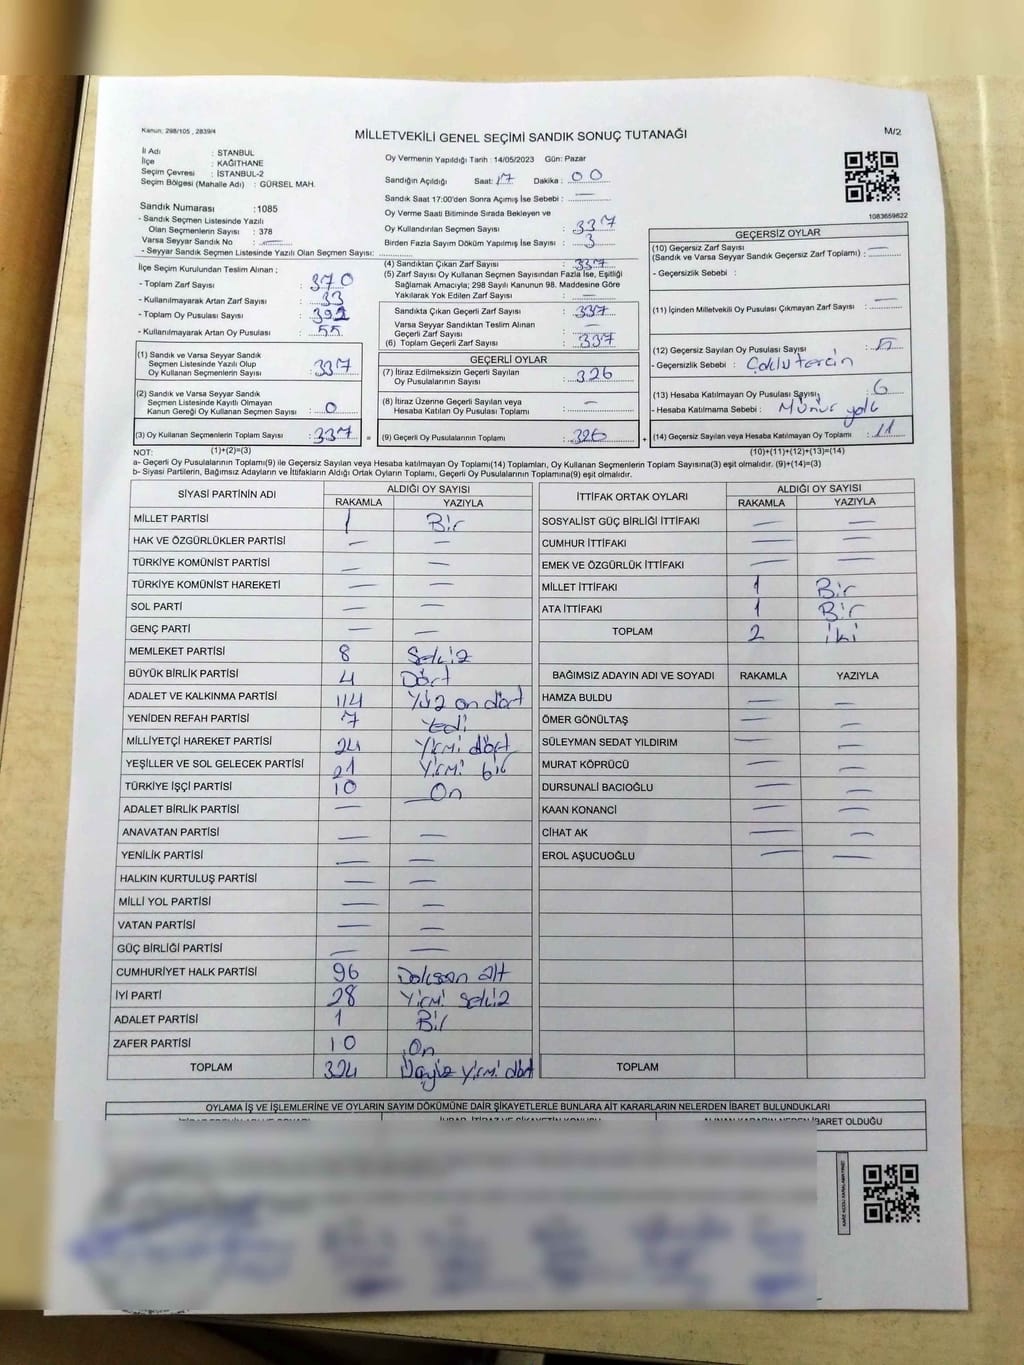 Kanun: 298/105 , 2839/4
MİLLETVEKİLİ GENEL SEÇİMİ SANDIK SONUÇ TUTANAĞI
M/2
İl Adı : İSTANBUL
İlçe : KAĞITHANE
Seçim Çevresi : İSTANBUL-2
Seçim Bölgesi (Mahalle Adı) : GÜRSEL MAH.
Oy Vermenin Yapıldığı Tarih : 14/05/2023 Gün: Pazar
Sandığın Açıldığı Saat: 17 Dakika : 00
Sandık Saat 17:00'den Sonra Açımış İse Sebebi : —
Oy Verme Saati Bitiminde Sırada Bekleyen ve
Oy Kullandırılan Seçmen Sayısı : 337
Birden Fazla Sayım Döküm Yapılmış İse Sayısı : 3
1083659622
Sandık Numarası : 1085
- Sandık Seçmen Listesinde Yazılı
Olan Seçmenlerin Sayısı : 378
Varsa Seyyar Sandık No : —
- Seyyar Sandık Seçmen Listesinde Yazılı Olan Seçmen Sayısı:
İlçe Seçim Kurulundan Teslim Alınan ;
- Toplam Zarf Sayısı : 370
- Kullanılmayarak Artan Zarf Sayısı : 33
- Toplam Oy Pusulası Sayısı : 392
- Kullanılmayarak Artan Oy Pusulası : 55
(1) Sandık ve Varsa Seyyar Sandık
Seçmen Listesinde Yazılı Olup
Oy Kullanan Seçmenlerin Sayısı : 337
(2) Sandık ve Varsa Seyyar Sandık
Seçmen Listesinde Kayıtlı Olmayan
Kanun Gereği Oy Kullanan Seçmen Sayısı : 0
(3) Oy Kullanan Seçmenlerin Toplam Sayısı : 337
(4) Sandıktan Çıkan Zarf Sayısı : 337
(5) Zarf Sayısı Oy Kullanan Seçmen Sayısından Fazla İse, Eşitliği
Sağlamak Amacıyla; 298 Sayılı Kanunun 98. Maddesine Göre
Yakılarak Yok Edilen Zarf Sayısı : —
Sandıkta Çıkan Geçerli Zarf Sayısı : 337
Varsa Seyyar Sandıktan Teslim Alınan
Geçerli Zarf Sayısı : —
(6) Toplam Geçerli Zarf Sayısı : 337
GEÇERLİ OYLAR
(7) İtiraz Edilmeksizin Geçerli Sayılan
Oy Pusulalarının Sayısı : 326
(8) İtiraz Üzerine Geçerli Sayılan veya
Hesaba Katılan Oy Pusulası Toplamı : —
= (9) Geçerli Oy Pusulalarının Toplamı : 326
GEÇERSİZ OYLAR
(10) Geçersiz Zarf Sayısı
(Sandık ve Varsa Seyyar Sandık Geçersiz Zarf Toplamı) : —
- Geçersizlik Sebebi :
(11) İçinden Milletvekili Oy Pusulası Çıkmayan Zarf Sayısı : —
(12) Geçersiz Sayılan Oy Pusulası Sayısı : 5
- Geçersizlik Sebebi : Çoklu tercin
(13) Hesaba Katılmayan Oy Pusulası Sayısı : 6
- Hesaba Katılmama Sebebi : Mühür yok
+ (14) Geçersiz Sayılan veya Hesaba Katılmayan Oy Toplamı : 11
NOT: (1)+(2)=(3) (10)+(11)+(12)+(13)=(14)
a- Geçerli Oy Pusulalarının Toplamı(9) ile Geçersiz Sayılan veya Hesaba katılmayan Oy Toplamı(14) Toplamları, Oy Kullanan Seçmenlerin Toplam Sayısına(3) eşit olmalıdır. (9)+(14)=(3)
b- Siyasi Partilerin, Bağımsız Adayların ve İttifakların Aldığı Ortak Oyların Toplamı, Geçerli Oy Pusulalarının Toplamına(9) eşit olmalıdır.
SİYASİ PARTİNİN ADI ALDIĞI OY SAYISI
RAKAMLA YAZIYLA
MİLLET PARTİSİ 1 Bir
HAK VE ÖZGÜRLÜKLER PARTİSİ — —
TÜRKİYE KOMÜNİST PARTİSİ — —
TÜRKİYE KOMÜNİST HAREKETİ — —
SOL PARTİ — —
GENÇ PARTİ — —
MEMLEKET PARTİSİ 8 Sekiz
BÜYÜK BİRLİK PARTİSİ 4 Dört
ADALET VE KALKINMA PARTİSİ 114 Yüz on dört
YENİDEN REFAH PARTİSİ 7 Yedi
MİLLİYETÇİ HAREKET PARTİSİ 24 Yirmi dört
YEŞİLLER VE SOL GELECEK PARTİSİ 21 Yirmi bir
TÜRKİYE İŞÇİ PARTİSİ 10 On
ADALET BİRLİK PARTİSİ —
ANAVATAN PARTİSİ — —
YENİLİK PARTİSİ — —
HALKIN KURTULUŞ PARTİSİ — —
MİLLİ YOL PARTİSİ — —
VATAN PARTİSİ — —
GÜÇ BİRLİĞİ PARTİSİ — —
CUMHURİYET HALK PARTİSİ 96 Doksan altı
İYİ PARTİ 28 Yirmi sekiz
ADALET PARTİSİ 1 Bir
ZAFER PARTİSİ 10 On
TOPLAM 324 Üçyüz yirmi dört
İTTİFAK ORTAK OYLARI ALDIĞI OY SAYISI
RAKAMLA YAZIYLA
SOSYALİST GÜÇ BİRLİĞİ İTTİFAKI — —
CUMHUR İTTİFAKI — —
EMEK VE ÖZGÜRLÜK İTTİFAKI — —
MİLLET İTTİFAKI 1 Bir
ATA İTTİFAKI 1 Bir
TOPLAM 2 iki
BAĞIMSIZ ADAYIN ADI VE SOYADI RAKAMLA YAZIYLA
HAMZA BULDU — —
ÖMER GÖNÜLTAŞ — —
SÜLEYMAN SEDAT YILDIRIM — —
MURAT KÖPRÜCÜ — —
DURSUNALİ BACIOĞLU — —
KAAN KONANCİ — —
CİHAT AK — —
EROL AŞUCUOĞLU — —
TOPLAM
OYLAMA İŞ VE İŞLEMLERİNE VE OYLARIN SAYIM DÖKÜMÜNE DAİR ŞİKAYETLERLE BUNLARA AİT KARARLARIN NELERDEN İBARET BULUNDUKLARI
ALINAN KARARIN NEDEN İBARET OLDUĞU